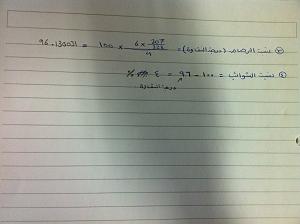 ③ نسبة الرصاص (درجة النقاوة) = 6 × 207/323 / 4 × 100 = 96.135031
④ نسبة الشوائب = 100 - 96 = 4 %
درجة النقاوة